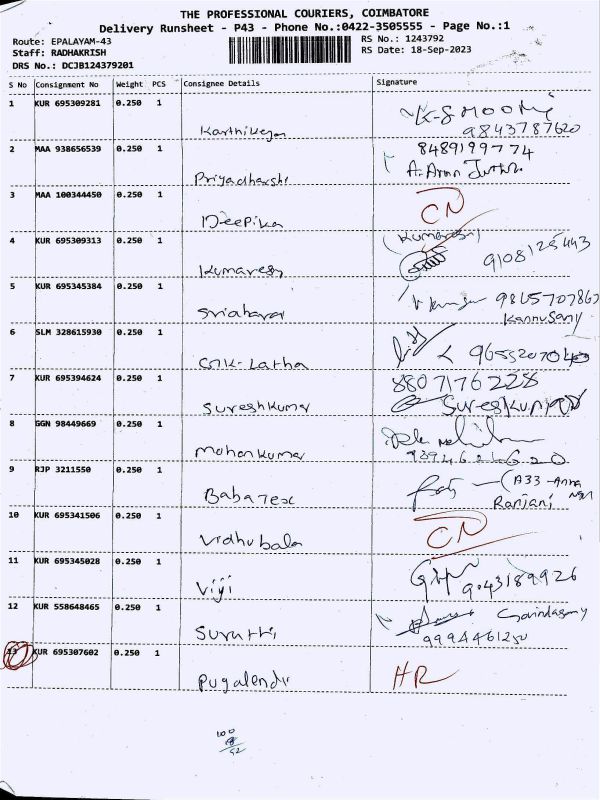 THE PROFESSIONAL COURIERS, COIMBATORE
Delivery Runsheet - P43 - Phone No.:0422-3505555 - Page No.:1
Route: EPALAYAM-43 RS No.: 1243792
Staff: RADHAKRISH RS Date: 18-Sep-2023
DRS No.: DCJB124379201
S No Consignment No Weight PCS Consignee Details Signature
1 KUR 695309281 0.250 1
Karthikeyan 9843787620
2 MAA 938656539 0.250 1 8489199774
Priyadharshi A. Arun
3 MAA 100344450 0.250 1 CN
Deepika
4 KUR 695309313 0.250 1 (Kumaresh)
Kumaresh 9108125443
5 KUR 695345384 0.250 1 9865707867
Kannusamy
6 SLM 328615930 0.250 1
Latha
7 KUR 695394624 0.250 1 8807176228
Sureshkumar Sureshkumar
8 GGN 98449669 0.250 1
Mohankumar
9 RJP 3211550 0.250 1 (A33 - Anna
Baba Tex Ranjani Ngr
10 KUR 695341506 0.250 1 CN
Vidhubala
11 KUR 695345028 0.250 1
Viji 9043189926
12 KUR 558648465 0.250 1 Govindasamy
Suruthi 9994461250
13 KUR 695307602 0.250 1 HR
Pugalendi
100
8
92